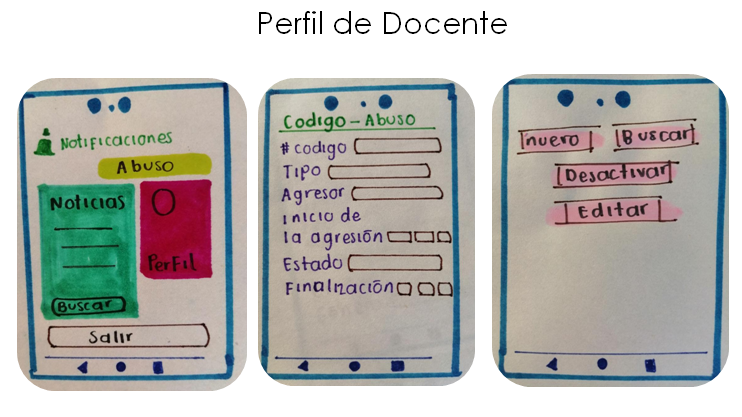 Perfil de Docente
Notificaciones
Abuso
Noticias
Perfil
Buscar
Salir
Codigo - Abuso
# codigo
Tipo
Agresor
Inicio de
la agresión
Estado
Finalización
nuevo
Buscar
Desactivar
Editar